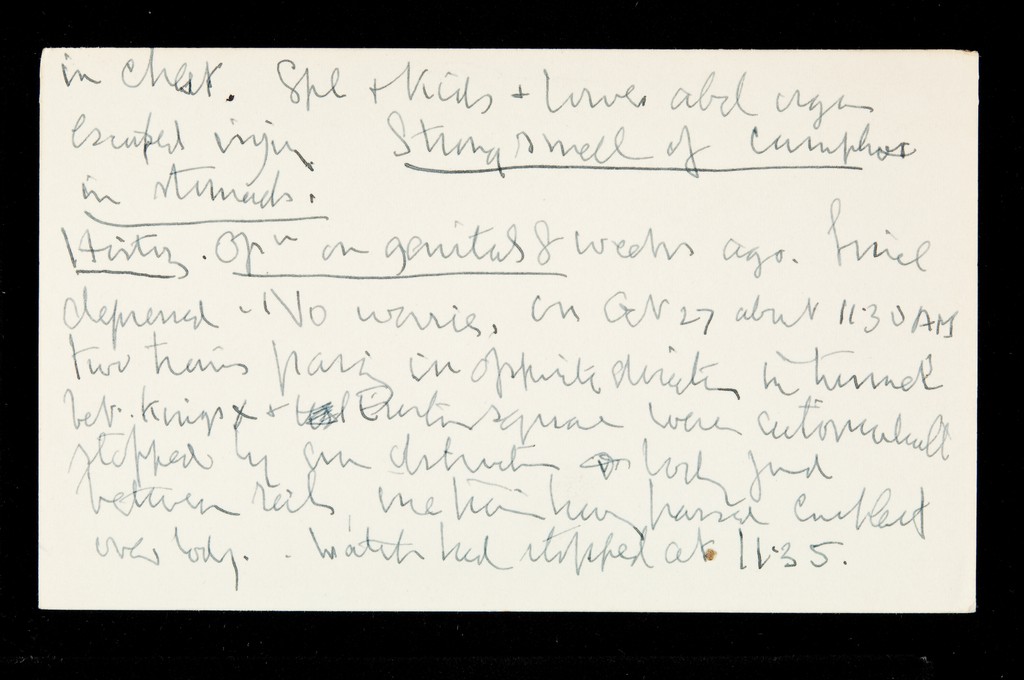 in chest. Spl + Kids + lower abd organ
escaped injury Strong smell of camphor
in stomach.
History. Opn on genitals 8 weeks ago. Since
depressed - No worries. On Oct 27 about 11.30 AM
two trains passing in opposite direction in tunnel
bet. Kings X + Euston square were automatically
stopped by an obstruction body found
between rails, one train having passed completely
over body. Watch had stopped at 11.35.